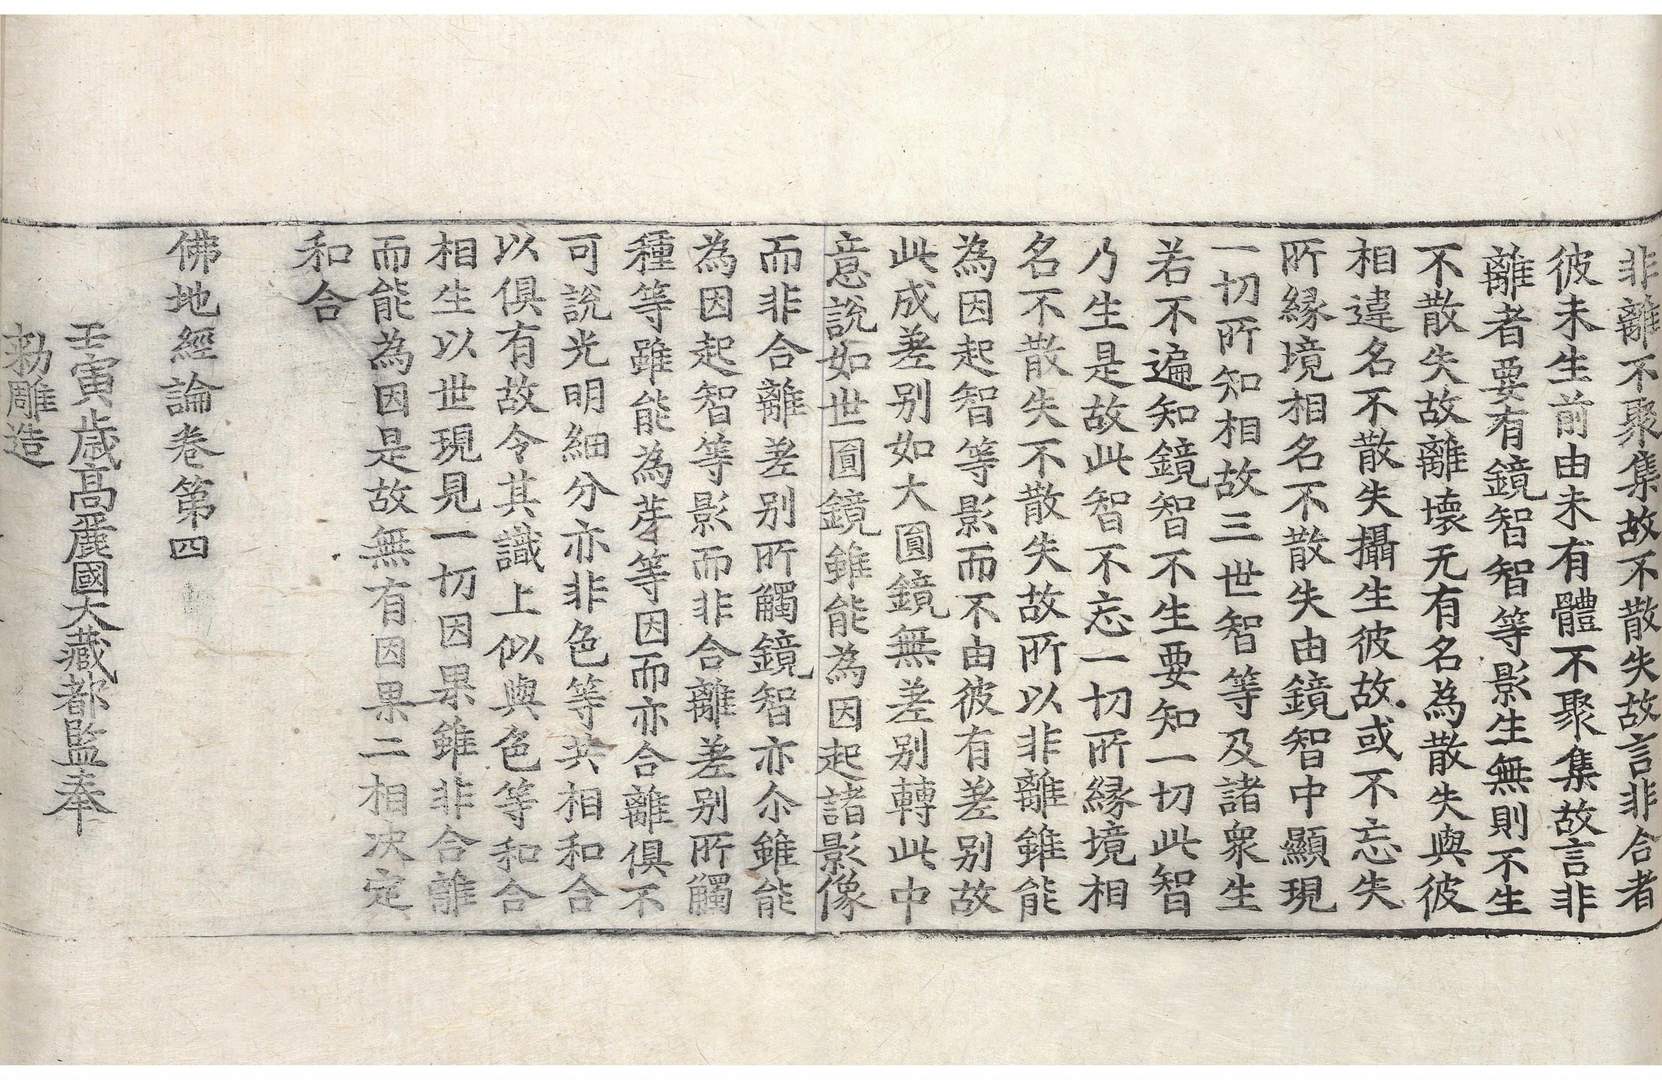 非離不聚集故不散失故言非合者
彼未生前由未有體不聚集故言非
離者要有鏡智智等影生無則不生
不散失故離壞无有名為散失與彼
相違名不散失攝生彼故或不忘失
所緣境相名不散失由鏡智中顯現
一切所知相故三世智等及諸衆生
若不遍知鏡智不生要知一切此智
乃生是故此智不忘一切所緣境相
名不散失不散失故所以非離雖能
為因起智等影而不由彼有差别故
此成差别如大圓鏡無差别轉此中
意說如世圓鏡雖能為因起諸影像
而非合離差别所觸鏡智亦尒雖能
為因起智等影而非合離差别所觸
種等雖能為芽等因而亦合離俱不
可說光明細分亦非色等共相和合
以俱有故令其識上似與色等和合
相生以世現見一切因果雖非合離
而能為因是故無有因果二相决定
和合
佛地經論卷第四
壬寅歲高麗國大藏都監奉
勑雕造